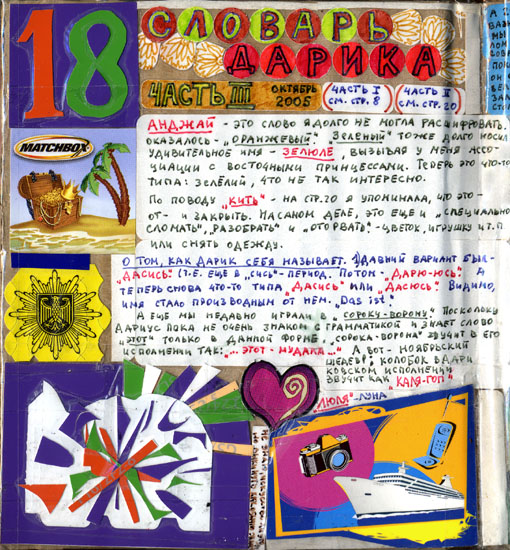 18
СЛОВАРЬ
ДАРИКА
ЧАСТЬ III
ОКТЯБРЬ
2005
(ЧАСТЬ I
СМ. СТР. 8)
(ЧАСТЬ II
СМ. СТР. 20)
АНДЖАЙ - ЭТО СЛОВО Я ДОЛГО НЕ МОГЛА РАСШИФРОВАТЬ,
ОКАЗАЛОСЬ - „ОРАНЖЕВЫЙ". „ЗЕЛЕНЫЙ" ТОЖЕ ДОЛГО НОСИЛ
УДИВИТЕЛЬНОЕ ИМЯ - ЗЕЛЮЛЕ, ВЫЗЫВАЯ У МЕНЯ АССО-
ЦИАЦИИ С ВОСТОЧНЫМИ ПРИНЦЕССАМИ. ТЕПЕРЬ ЭТО ЧТО-ТО
ТИПА: ЗЕЛЕЛИЙ, ЧТО НЕ ТАК ИНТЕРЕСНО.
ПО ПОВОДУ „КИТЬ" - НА СТР. 20 Я УПОМИНАЛА, ЧТО ЭТО -
ОТ- И ЗАКРЫТЬ. НА САМОМ ДЕЛЕ, ЭТО ЕЩЕ И „СПЕЦИАЛЬНО
СЛОМАТЬ", „РАЗОБРАТЬ" И „ОТОРВАТЬ" - ЦВЕТОК, ИГРУШКУ И Т.П
ИЛИ СНЯТЬ ОДЕЖДУ.
О ТОМ, КАК ДАРИК СЕБЯ НАЗЫВАЕТ. ДАВНИЙ ВАРИАНТ БЫЛ -
„ДАСИСЬ" (Т.Е. ЕЩЕ В „СИСЬ"-ПЕРИОД. ПОТОМ - „ДАРЮ-ЮСЬ". А
ТЕПЕРЬ СНОВА ЧТО-ТО ТИПА „ДАСИСЬ" ИЛИ „ДАСЮСЬ". ВИДИМО,
ИМЯ СТАЛО ПРОИЗВОДНЫМ ОТ НЕМ. „Das ist".
А ЕЩЕ МЫ НЕДАВНО ИГРАЛИ В „СОРОКУ-ВОРОНУ". ПОСКОЛЬКУ
ДАРИУС ПОКА НЕ ОЧЕНЬ ЗНАКОМ С ГРАММАТИКОЙ И ЗНАЕТ СЛОВО
„ЭТОТ" ТОЛЬКО В ДАННОЙ ФОРМЕ, „СОРОКА-ВОРОНА" ЗВУЧИТ В ЕГО
ИСПОЛНЕНИИ ТАК: „... ЭТОТ - МУДАЛА..."
А ВОТ - НОЯБРЬСКИЙ
ШЕДЕВР: КОЛОБОК В ДАРИ
КОВСКОМ ИСПОЛНЕНИИ
ЗВУЧИТ КАК „КАЛЯ-ГОП"
„ЛЮЛЯ" - ЛУНА
MATCHBOX